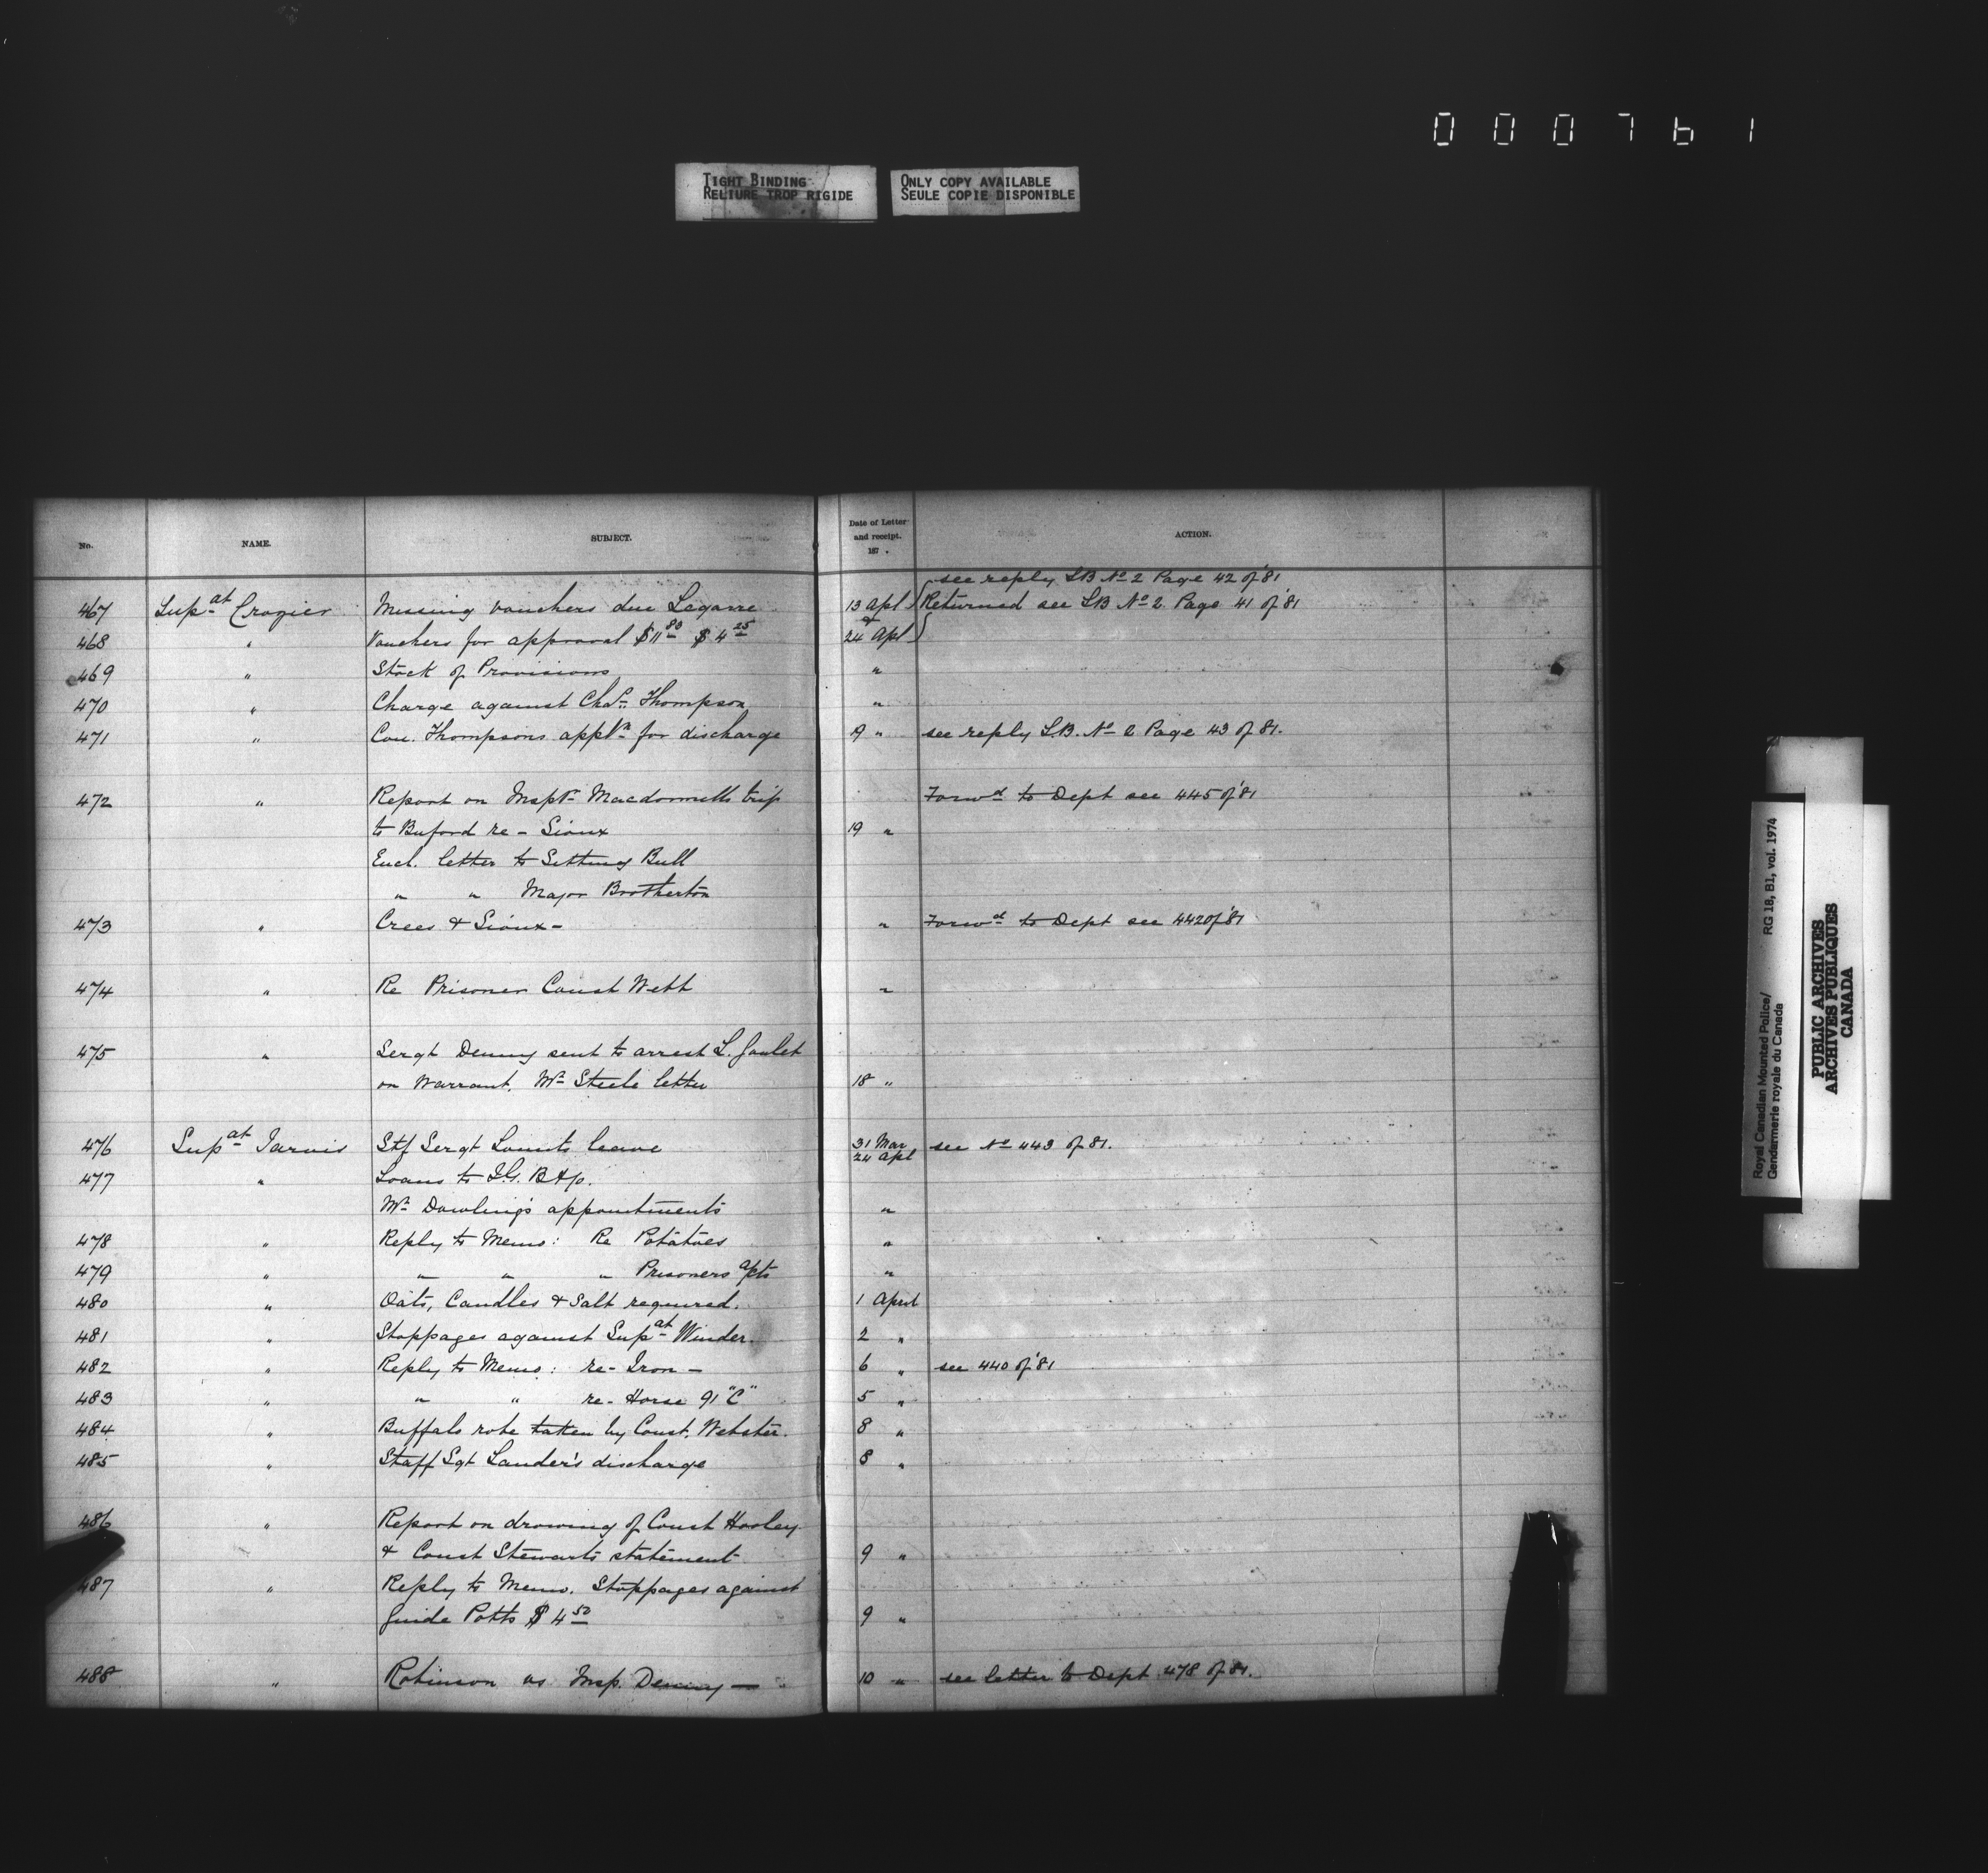 000761
TIGHT BINDING
RELIURE TROP RIGIDE
ONLY COPY AVAILABLE
SEULE COPIE DISPONIBLE
No. NAME. SUBJECT. Date of Letter and receipt. 187 . ACTION.
see reply LB No 2 Page 42 of '81
467 Supat Crozier Missing vouchers due Legarre 13 Apl Returned see LB No 2 Page 41 of '81
468 " Vouchers for approval $11.80 $4.25 & 24 Apl
469 " Stock of Provisions "
470 " Charge against Chas. Thompson "
471 " Con. Thompsons appln for discharge 19 " see reply L.B. No 2 Page 43 of 81.
472 " Report on Inspr Macdonnells trip Forwd to Dept see 445 of '81
to Buford re - Sioux 19 "
Encl. letter to Sitting Bull
" " Major Brotherton
473 " Crees & Sioux - " Forwd to Dept see 442 of '81
474 " Re Prisoner Const Webb "
475 " Sergt Denny sent to arrest L. Goulet
on Warrant. Mr Steele letter 18 "
476 Supat Jarvis Stf Sergt leave 31 Mar 24 Apl see No 443 of 81.
477 " Loans to I.G. B & Co.
Mr Dowling's appointments "
478 " Reply to Memo: Re Potatoes "
479 " " " " Prisoners apts "
480 " Oats, Candles & Salt required. 1 April
481 " Stoppages against Supat Winder. 2 "
482 " Reply to Memo: re - Iron - 6 " see 440 of '81
483 " " " re - Horse 91 "C" 5 "
484 " Buffalo robe taken by Const. Webster. 8 "
485 " Staff Sgt Lauder's discharge 8 "
486 " Report on drowing of Const Hooley
& Const Stewarts statement 9 "
487 " Reply to Memo. Stoppages against
Guide Potts $4.50 9 "
488 " Robinson vs Insp. Denny — 10 " see letter to Dept 478 of 81.
Royal Canadian Mounted Police/
Gendarmerie royale du Canada
RG 18, B1, vol. 1974
PUBLIC ARCHIVES
ARCHIVES PUBLIQUES
CANADA